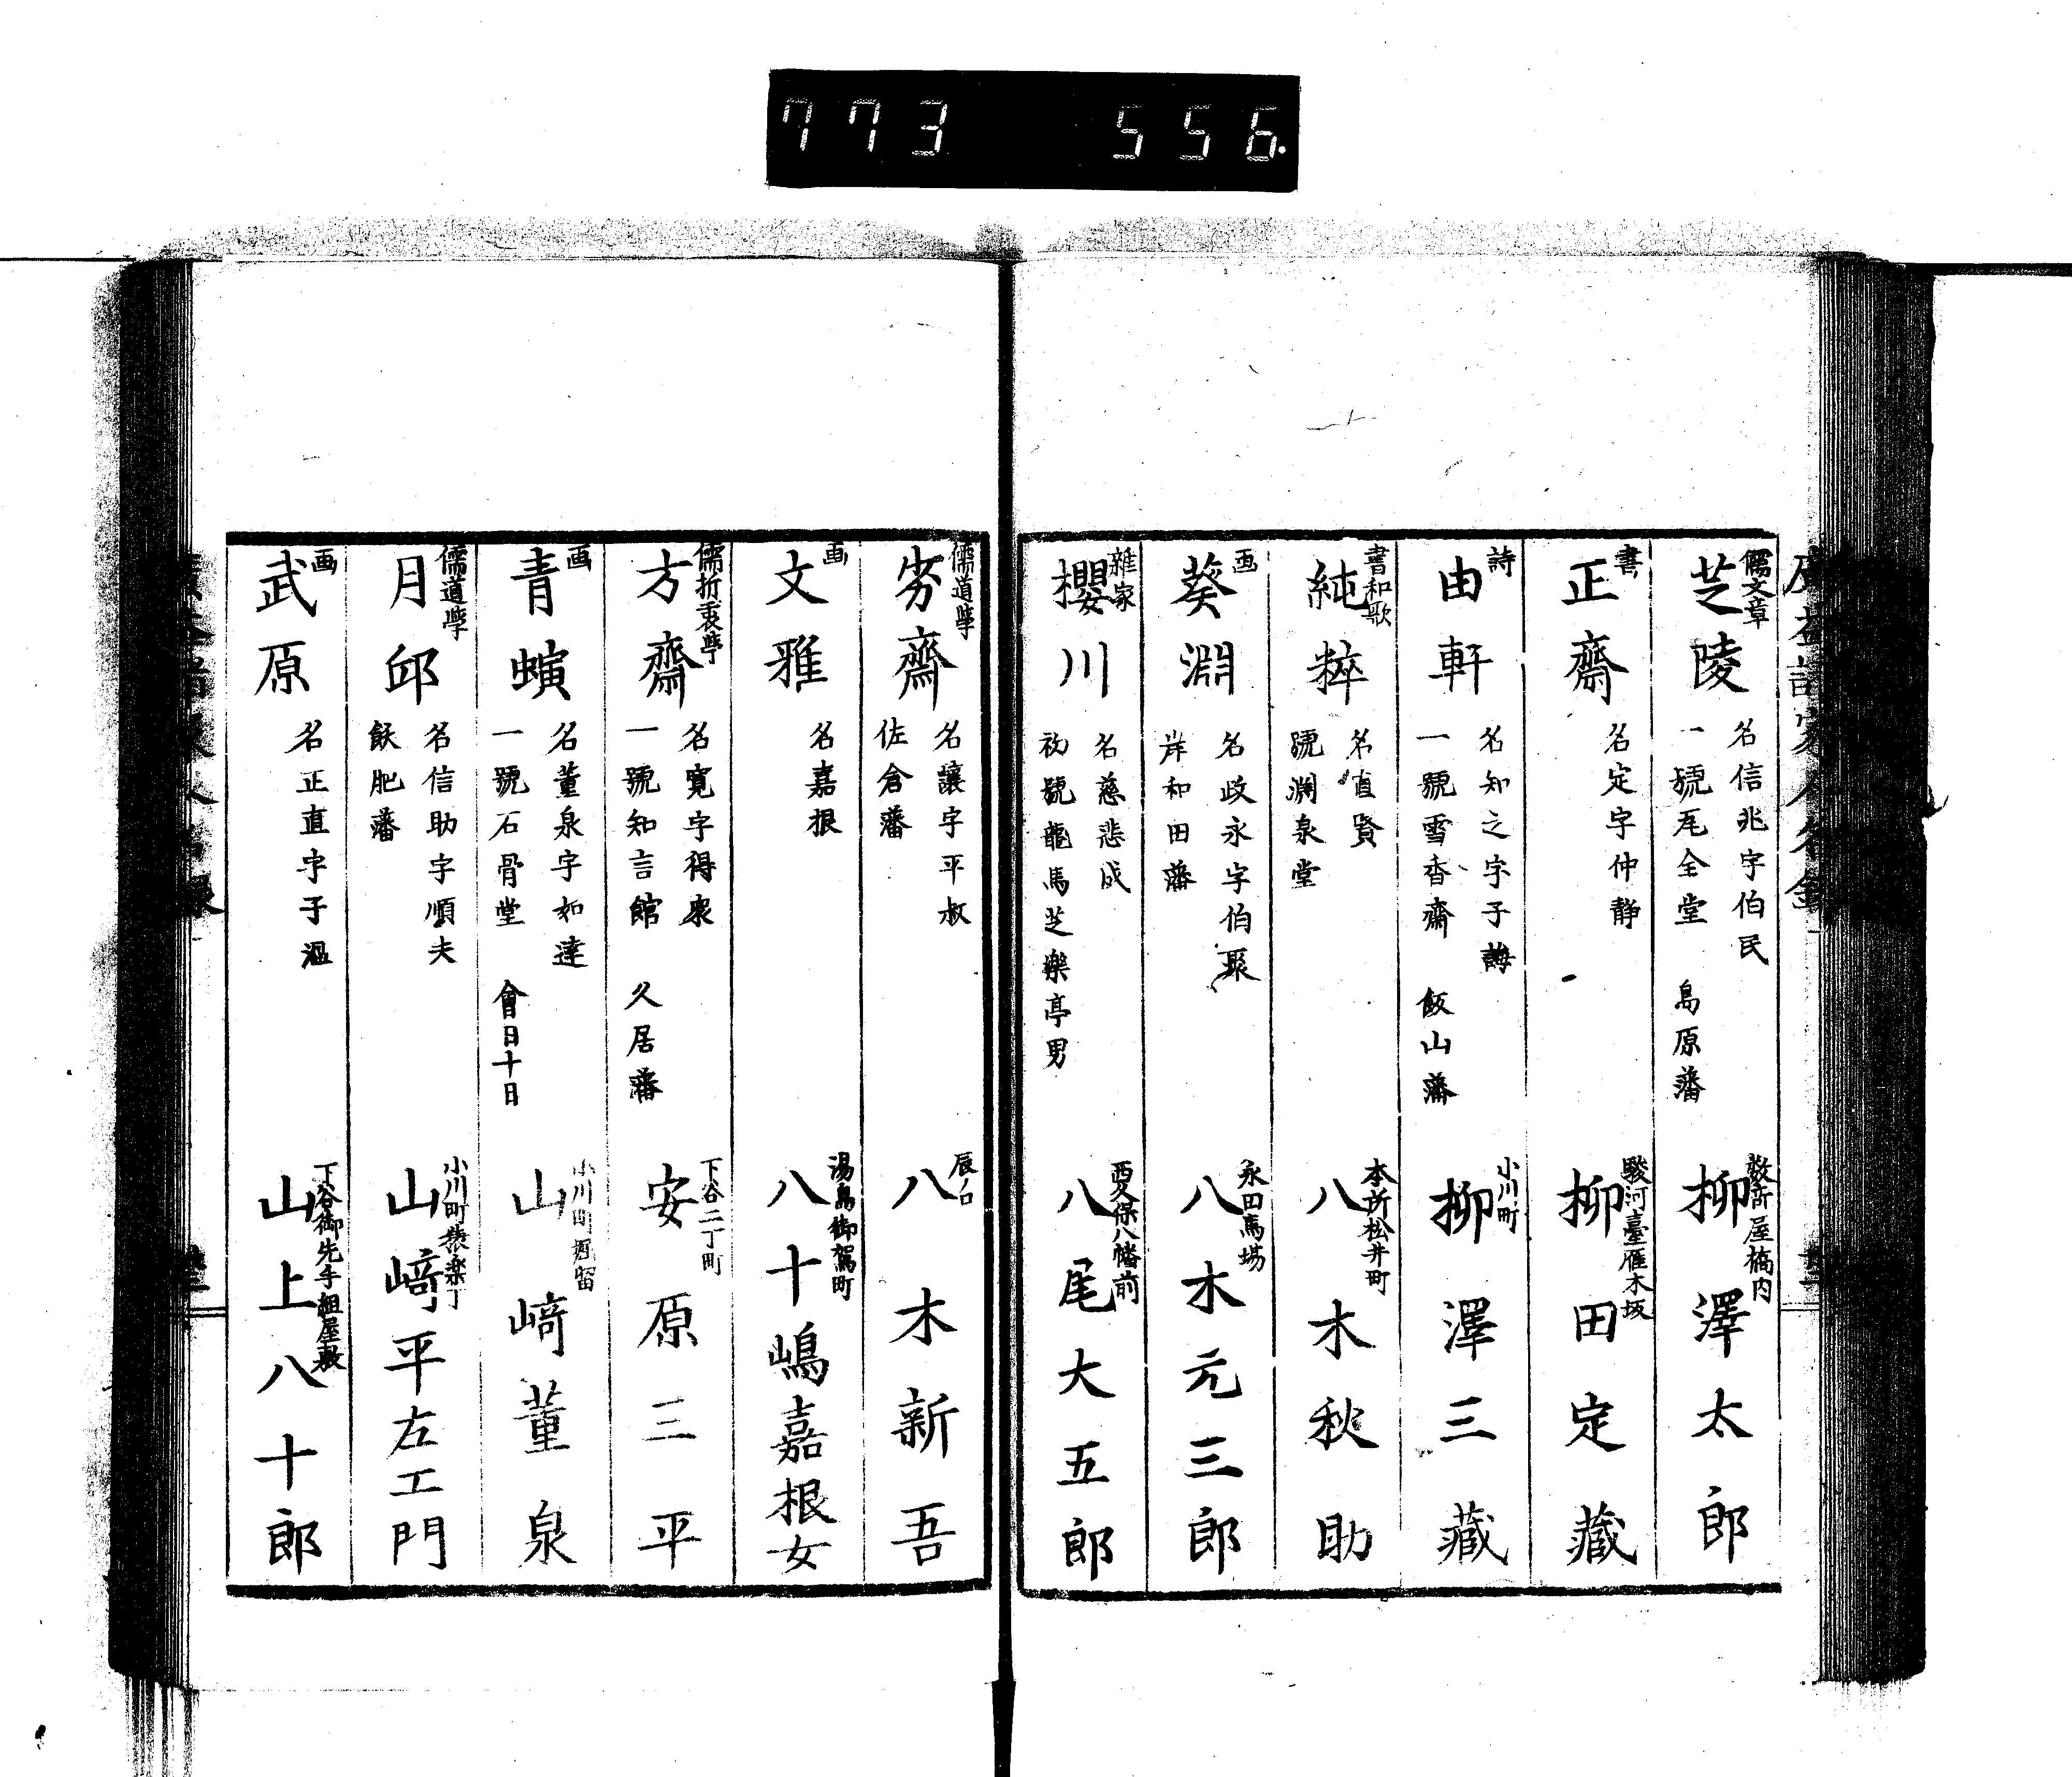 773 556.
廣益諸家人名錄
儒文章
芝陵
名信兆字伯民
一號尾全堂 島原藩
数寄屋橋内
柳澤太郎
書
正齋
名定字仲静
駿河臺雁木坂
柳田定藏
詩
由軒
名知之字子誨
一號雪香齋 飯山藩
小川町
柳澤三藏
書和歌
純粹
名直賢
號淵泉堂
本所松井町
八木秋助
画
葵淵
名政永字伯聚
岸和田藩
永田馬場
八木元三郎
雑家
櫻川
名慈悲成
初號龍馬芝樂亭男
西久保八幡前
八尾大五郎
儒道學
名讓字平叔
佐倉藩
辰ノ口
八木新吾
画
文雅
名嘉根
湯島御駕町
八十嶋嘉根女
儒折衷學
方齋
名寛字得衆
一號知言館 久居藩
下谷二丁町
安原三平
画
青蟥
名董泉字如達
一號石骨堂 會日十日
小川町堀留
山﨑董泉
儒道學
月邱
名信助字順夫
飫肥藩
小川町猿楽丁
山﨑平左工門
画
武原
名正直字子温
下谷御先手組屋敷
山上八十郎